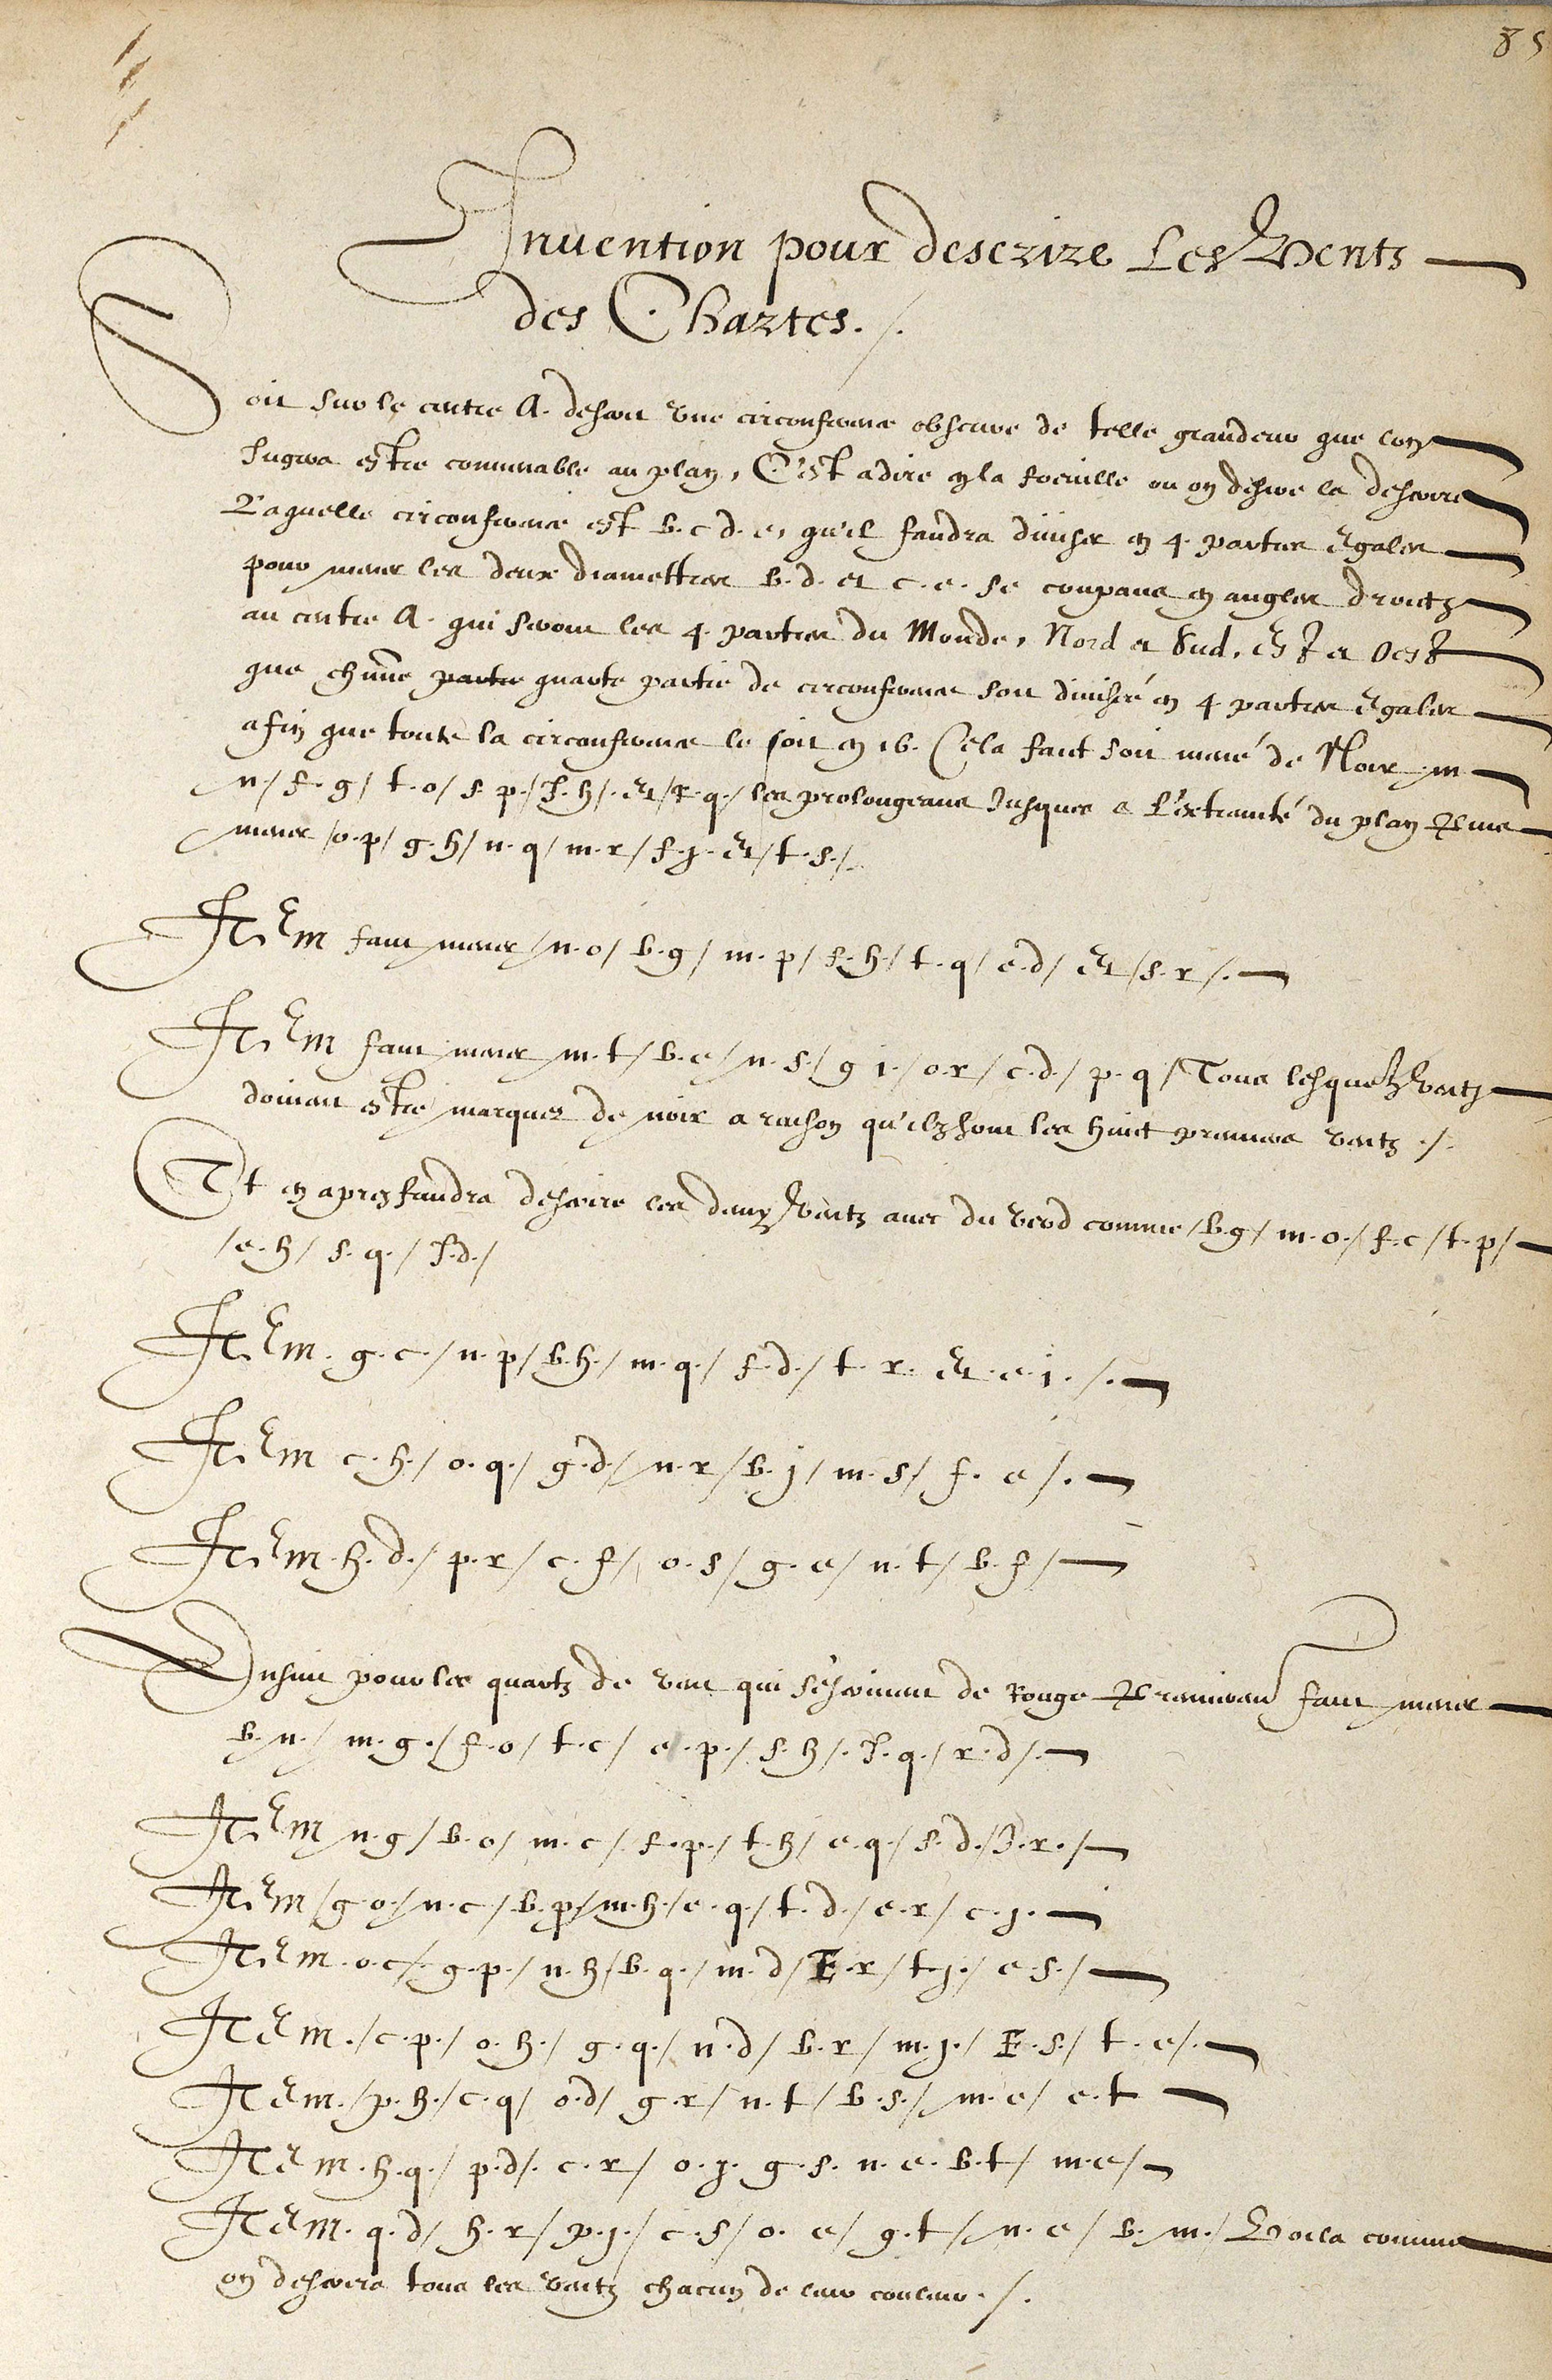 85
Invention pour descrire Les Vents
des Chartes ./.
Soit sur le centre A. descrit vne circonference obscure de telle grandeur que lon
Jugera estre conuenable au plan, C'est adire en la foeuille ou on desire le descrire
Laquelle circonference est b. c d. e, qu'il faudra diuiser en 4. parties Egales
pour mener les deux diamettres b. d. et c. e. se coupans en angles droictz
au centre A. qui seront les 4. parties du Monde, Nord et Sud, Est et Oest
que chũne partie quarte partie de circonference soit diuisée en 4 parties Egales
afin que toute la circonference le soit en 16. Cela faict soit mené de Noir m
n/ f. g/ t. o/ s p./ J. h/. Et/ r. q./ les prolongeans Jusques a L'extremité du plan
mener /o. p/ g. h/ n. q/ m. r/ f. j. Et/ t. s./.
ItEm faut mener /n. o/ b. g/ m. p/ f. h/ t. q/ e. d/ Et /s. r/.
ItEm faut mener m. t/ b. e/ n. s/ g j./ o. r/ c. d/ p. q/ Tous lesquelz ventz
doiuent estre marquez de noir a raison qu'ilz sont les huict premiers ventz ./.
Et en aprez faudra descrire les demy ventz auec du verd comme /b. g/ m. o./ f. c/ t. p/
/e. h/ s. q./ J. d./
ItEm. g. c./ n. p/ b. h./ m. q./ f. d./ t. r. Et. e j. /.
ItEm c. h./ o. q./ g. d/ n. r/ b. j/ m. s/ f. e/.
ItEm. h. d./ p. r/ c. f/ o. s/ g. e/ n. t/ b. f/
Ensuit pour les quartz de vent qui s'escriuent de Rouge Premierem̃t faut mener
b. n./ m. g./ f. o/ t. c/ e. p./ s. h/. J. q./ r. d/.
ItEm n. g/ b. o/ m. c/ f. p./ t. h/ e. q./ s. d./ J. r./
ItEm /g. o/ n. c./ b. p/ m. h./ e. q./ t. d./ e. r/ c. j.
ItEm. o. c/. g. p./ n. h/ b. q./ m. d/ F. r/ t. j./ e. s./
ItEm./ c. p./ o. h./ g. q./ n. d/ b. r/ m. j./ F. s./ t. e/.
ItEm./ p. h./ c. q/ o. d/ g. r/ n. t/ b. s./ m. e/ e. t
ItEm. h. q./ p. d/. c. r/ o. j. g. s. n. e. b. t/ m. e/
ItEm. q. d/ h. r/ p. j./ c. s/ o. e/ g. t/ n. e/ b. m./ Voila comme
on descrira tous les ventz chacun de leur couleur ./.